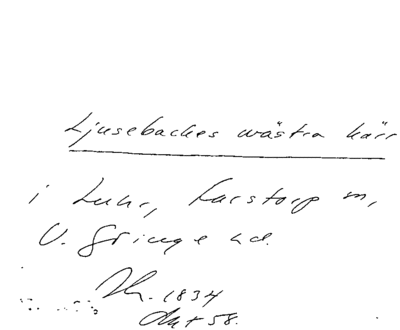 Ljusebackes västra kärr
i Luhr, Farstorp m,
V. Göinge hd.
1834
Akt 58.